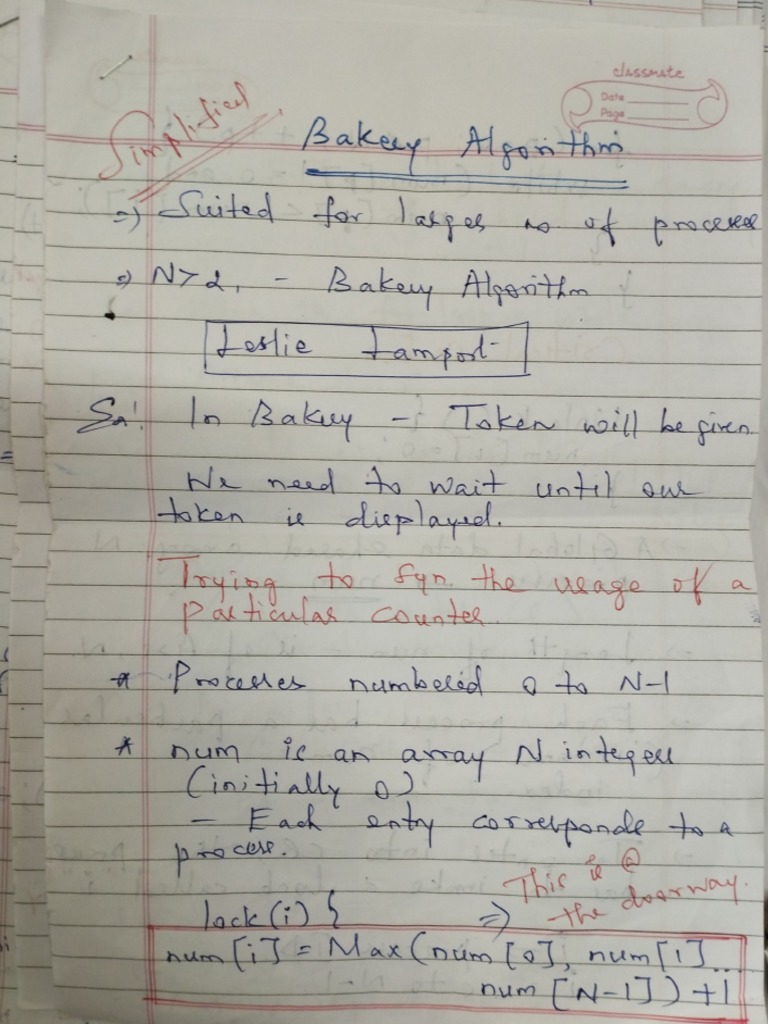 classmate
Date
Page
Simplified
Bakery Algorithm
=> Suited for larger no of processes
=> N>2, - Bakery Algorithm
Leslie Lamport
In Bakery - Token will be given
We need to wait until our
token is displayed.
Trying to syn the usage of a
particular counter.
* Processes numbered 0 to N-1
* num is an array N integers
(initially 0)
- Each entry corresponds to a
process.
This is @
the doorway.
lock(i) { =>
num[i] = Max(num[0], num[1]..
num [N-1]) +1